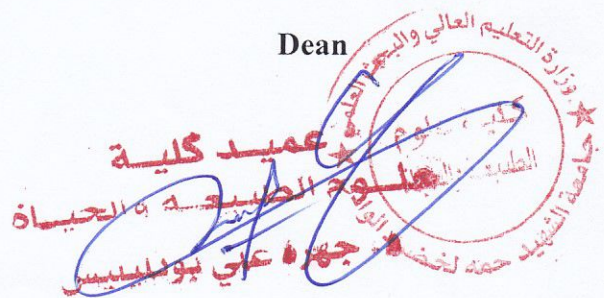 Dean
وزارة التعليم العالي والبحث العلمي
جامعة الشهيد حمه لخضر الوادي
كلية علوم
الطبيعة والحياة
عميد كلية
علوم الطبيعة والحياة
علي بوتليليس